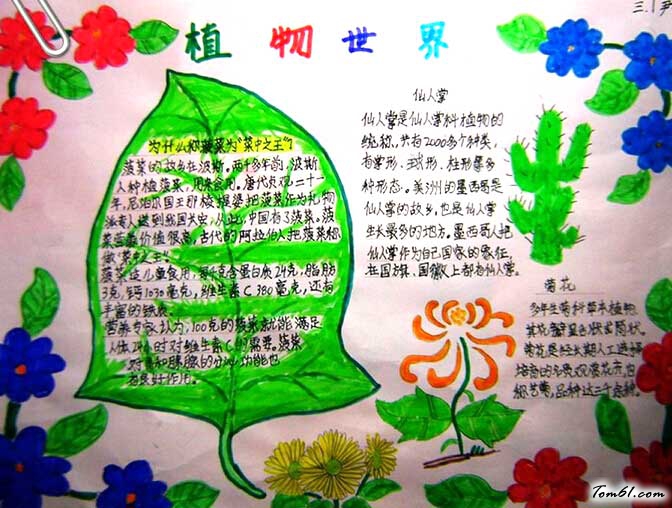 三.1尹
植物世界
为什么称菠菜为"菜中之王"?
菠菜的故乡在波斯。两千多年前,波斯
人种植菠菜,用来食用。唐代贞观二十一
年,尼泊尔国王那棱提婆把菠菜作为礼物
派专人送到我国长安,从此,中国有了菠菜。菠
菜营养价值很高,古代的阿拉伯人把菠菜称
做"菜中之王"
菠菜适儿童食用,每千克含蛋白质24克,脂肪
3克,钙1030毫克,维生素C380毫克,还有
丰富的铁质。
营养专家认为,100克的菠菜就能满足
人体24小时对维生素C的需要。菠菜
对胃和胰腺的分泌功能也
有良好作用。
仙人掌
仙人掌是仙人掌科植物的
统称,共有2000多个种类,
有掌形、球形、柱形等多
种形态。美洲的墨西哥是
仙人掌的故乡,也是仙人掌
生长最多的地方。墨西哥人把
仙人掌作为自己国家的象征,
在国旗、国徽上都有仙人掌。
菊花
多年生菊科草本植物
其花瓣呈舌状或筒状。
菊花是经长期人工选择
培育的名贵观赏花卉,也
称艺菊,品种达三千余种。
Tom61.com